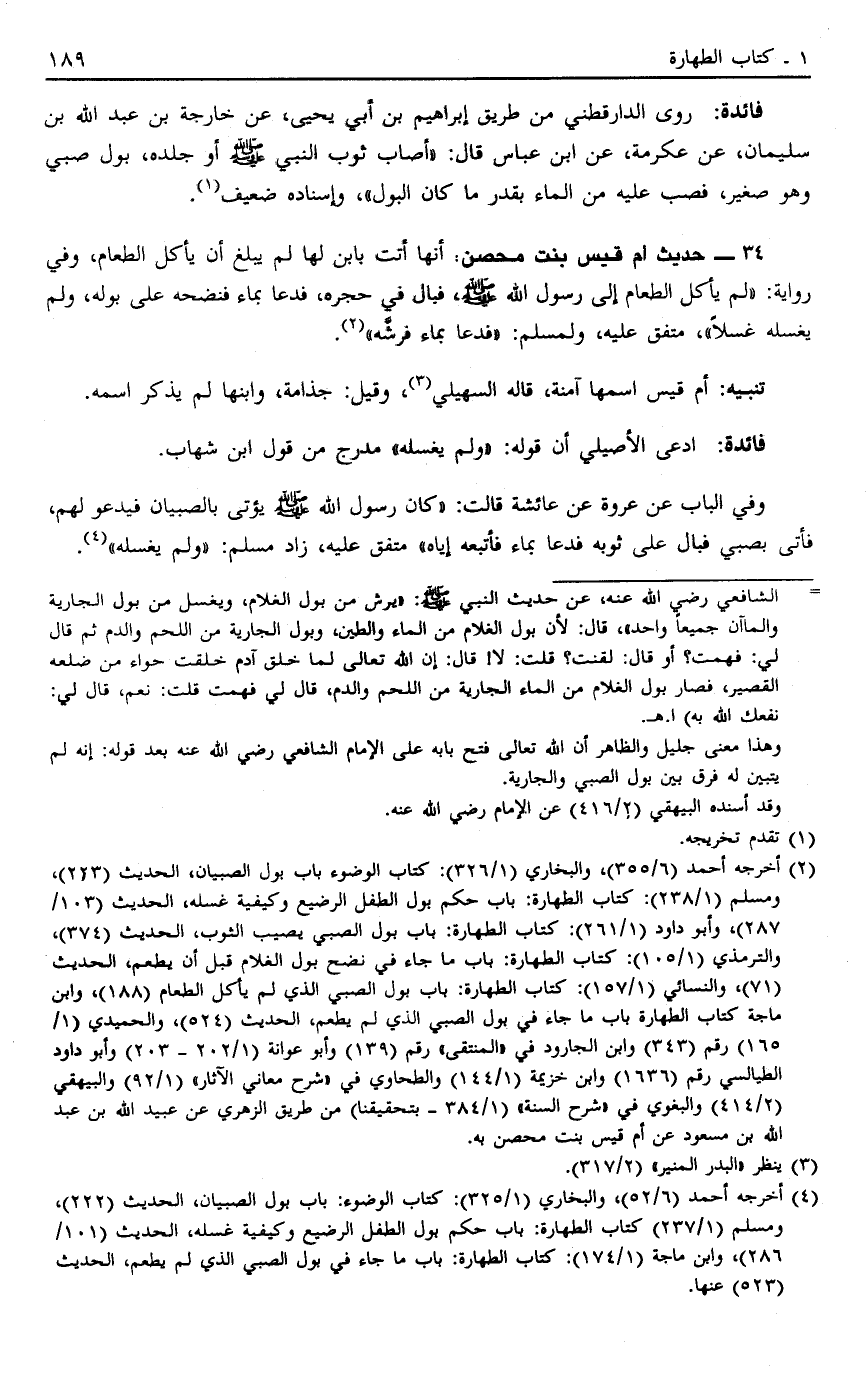 ١ ـ كتاب الطهارة ١٨٩
فائدة: روى الدارقطني من طريق إبراهيم بن أبي يحيى، عن خارجة بن عبد الله بن
سليمان، عن عكرمة، عن ابن عباس قال: «أصاب ثوب النبي ﷺ أو جلده، بول صبي
وهو صغير، فصب عليه من الماء بقدر ما كان البول»، وإسناده ضعيف(١).
٣٤ ــ حديث أم قيس بنت محصن: أنها أتت بابن لها لم يبلغ أن يأكل الطعام، وفي
رواية: «لم يأكل الطعام إلى رسول الله ﷺ، فبال في حجره، فدعا بماء فنضحه على بوله، ولم
يغسله غسلاً»، متفق عليه، ولمسلم: «فدعا بماء فرشَّه»(٢).
تنبيه: أم قيس اسمها آمنة، قاله السهيلي(٣)، وقيل: جذامة، وابنها لم يذكر اسمه.
فائدة: ادعى الأصيلي أن قوله: «ولم يغسله» مدرج من قول ابن شهاب.
وفي الباب عن عروة عن عائشة قالت: «كان رسول الله ﷺ يؤتى بالصبيان فيدعو لهم،
فأتى بصبي فبال على ثوبه فدعا بماء فأتبعه إياه» متفق عليه، زاد مسلم: «ولم يغسله»(٤).
= الشافعي رضي الله عنه، عن حديث النبي ﷺ: «يرش من بول الغلام، ويغسل من بول الجارية
والماآن جميعاً واحد»، قال: لأن بول الغلام من الماء والطين، وبول الجارية من اللحم والدم ثم قال
لي: فهمت؟ أو قال: لقنت؟ قلت: لا! قال: إن الله تعالى لما خلق آدم خلقت حواء من ضلعه
القصير، فصار بول الغلام من الماء الجارية من اللحم والدم، قال لي فهمت قلت: نعم، قال لي:
نفعك الله به) ا.هـ.
وهذا معنى جليل والظاهر أن الله تعالى فتح بابه على الإمام الشافعي رضي الله عنه بعد قوله: إنه لم
يتبين له فرق بين بول الصبي والجارية.
وقد أسنده البيهقي (٤١٦/٢) عن الإمام رضي الله عنه.
(١) تقدم تخريجه.
(٢) أخرجه أحمد (٣٥٥/٦)، والبخاري (٣٢٦/١): كتاب الوضوء باب بول الصبيان، الحديث (٢٢٣)،
ومسلم (٢٣٨/١): كتاب الطهارة: باب حكم بول الطفل الرضيع وكيفية غسله، الحديث (١٠٣/
٢٨٧)، وأبو داود (٢٦١/١): كتاب الطهارة: باب بول الصبي يصيب الثوب، الحديث (٣٧٤)،
والترمذي (١٠٥/١): كتاب الطهارة: باب ما جاء في نضح بول الغلام قبل أن يطعم، الحديث
(٧١)، والنسائي (١٥٧/١): كتاب الطهارة: باب بول الصبي الذي لم يأكل الطعام (١٨٨)، وابن
ماجة كتاب الطهارة باب ما جاء في بول الصبي الذي لم يطعم، الحديث (٥٢٤)، والحميدي (١/
١٦٥) رقم (٣٤٣) وابن الجارود في «المنتقى» رقم (١٣٩) وأبو عوانة (٢٠٢/١ - ٢٠٣) وأبو داود
الطيالسي رقم (١٦٣٦) وابن خزيمة (١٤٤/١) والطحاوي في «شرح معاني الآثار» (٩٢/١) والبيهقي
(٤١٤/٢) والبغوي في «شرح السنة» (٣٨٤/١ - بتحقيقنا) من طريق الزهري عن عبيد الله بن عبد
الله بن مسعود عن أم قيس بنت محصن به.
(٣) ينظر «البدر المنير» (٣١٧/٢).
(٤) أخرجه أحمد (٥٢/٦)، والبخاري (٣٢٥/١): كتاب الوضوء: باب بول الصبيان، الحديث (٢٢٢)،
ومسلم (٢٣٧/١) كتاب الطهارة: باب حكم بول الطفل الرضيع وكيفية غسله، الحديث (١٠١/
٢٨٦)، وابن ماجة (١٧٤/١): كتاب الطهارة: باب ما جاء في بول الصبي الذي لم يطعم، الحديث
(٥٢٣) عنها.